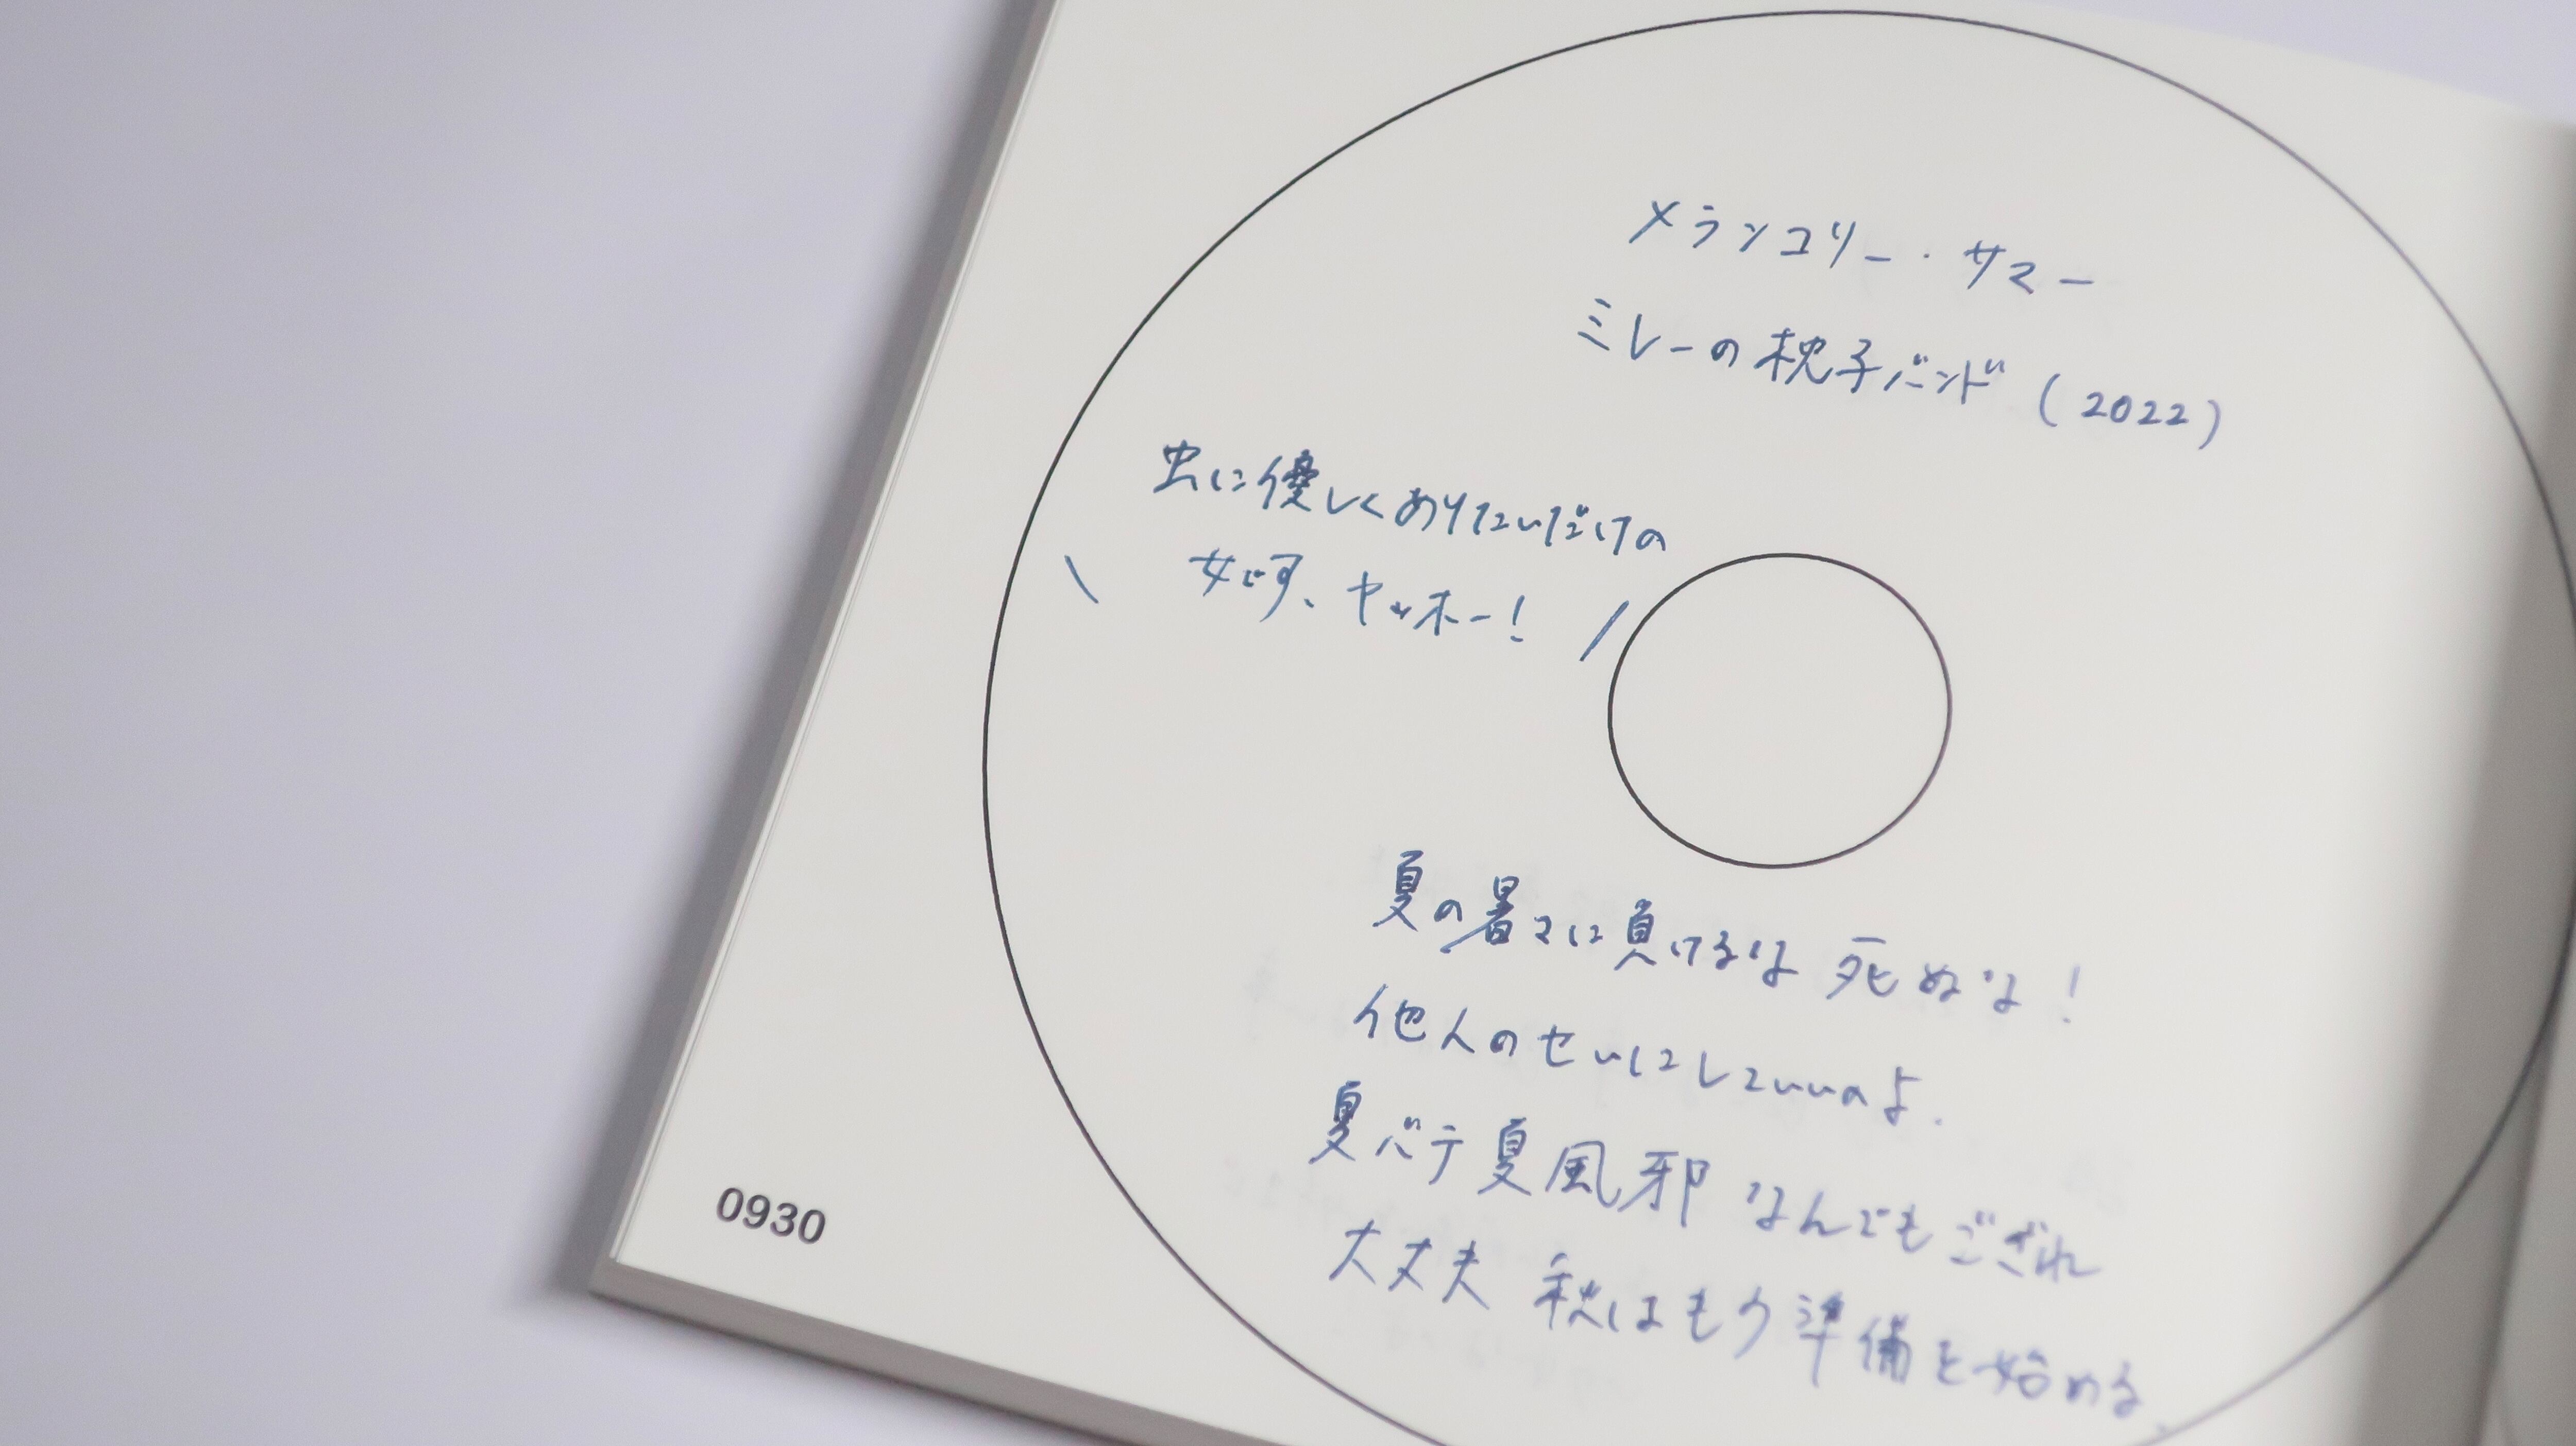 メランコリー・サマー
ミレーの枕子バンド（2022）
虫に優しくありたいだけの
\ 女です、ヤッホー! /
夏の暑さに負けるな 死ぬな!
他人のせいにしていいのよ.
夏バテ夏風邪 なんでもござれ
大丈夫 秋はもう準備を始める
0930